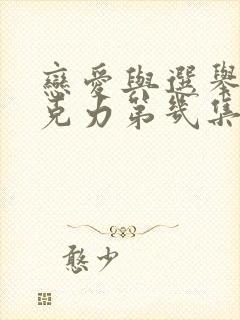 戀愛與選舉
克力第幾集
憨少